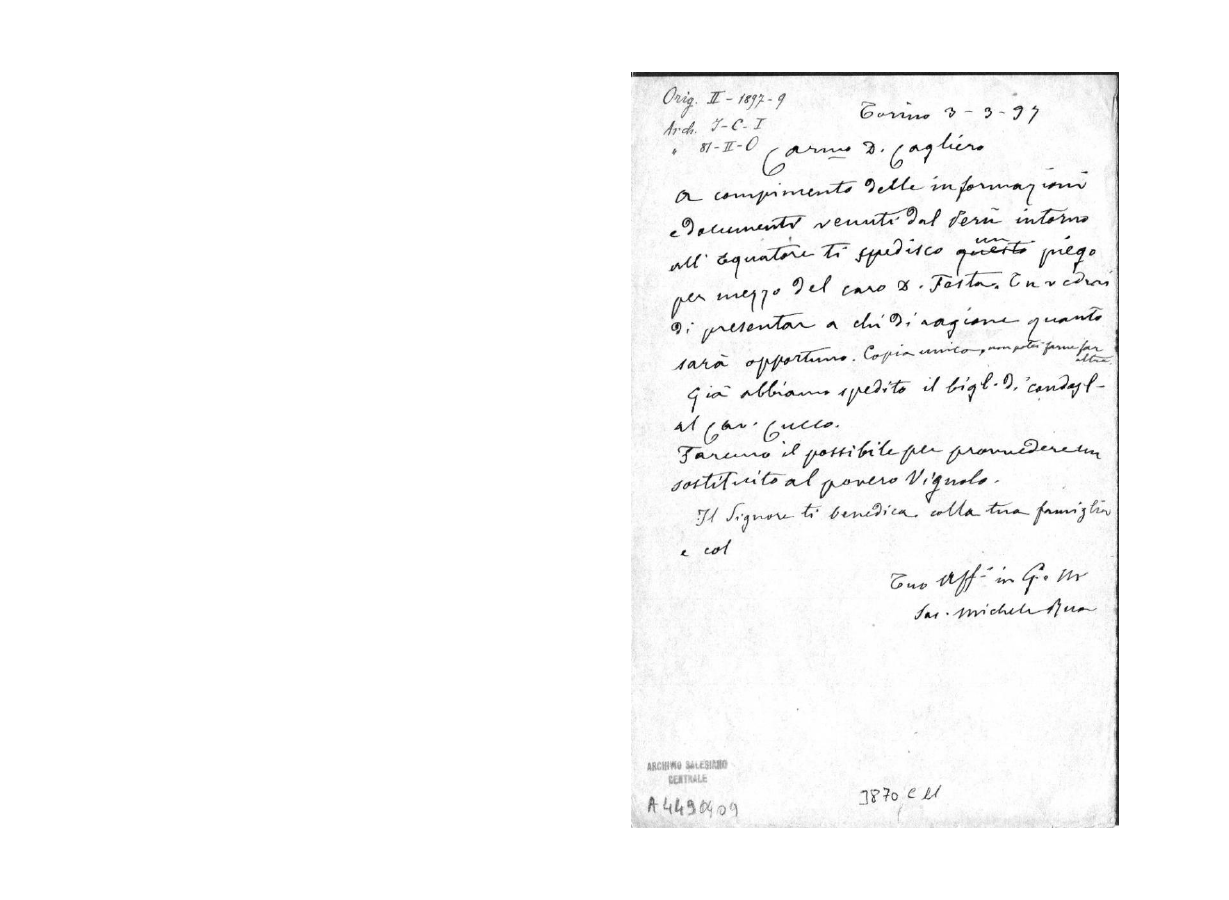 Orig. II - 1897 - 9
Arch. I-C-I
" 81-II-O
Torino 3 - 3 - 97
Carmo D. Cagliero
A compimento delle informazioni
e documenti venuti dal Perù intorno
all' Equatore ti spedisco questo un piego
per mezzo del caro D. Festa. Tu vedrai
di presentar a chi di ragione quanto
sarà opportuno. Copia unica, non potei farne far
altra.
Già abbiamo spedito il bigl. di condogl-
al Cav. Cucco.
Faremo il possibile per provvedere un
sostituito al povero Vignolo.
Il Signore ti benedica colla tua famiglia
e col
Tuo Aff. in G. e M
Sac. Michele Rua
ARCHIVIO SALESIANO
CENTRALE
A4490409
3870 C 11